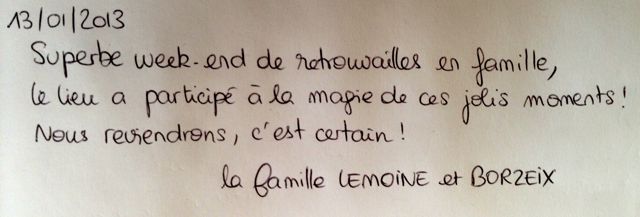 13/01/2013
Superbe week-end de retrouvailles en famille,
le lieu a participé à la magie de ces jolis moments !
Nous reviendrons, c'est certain !
la famille LEMOINE et BORZEIX